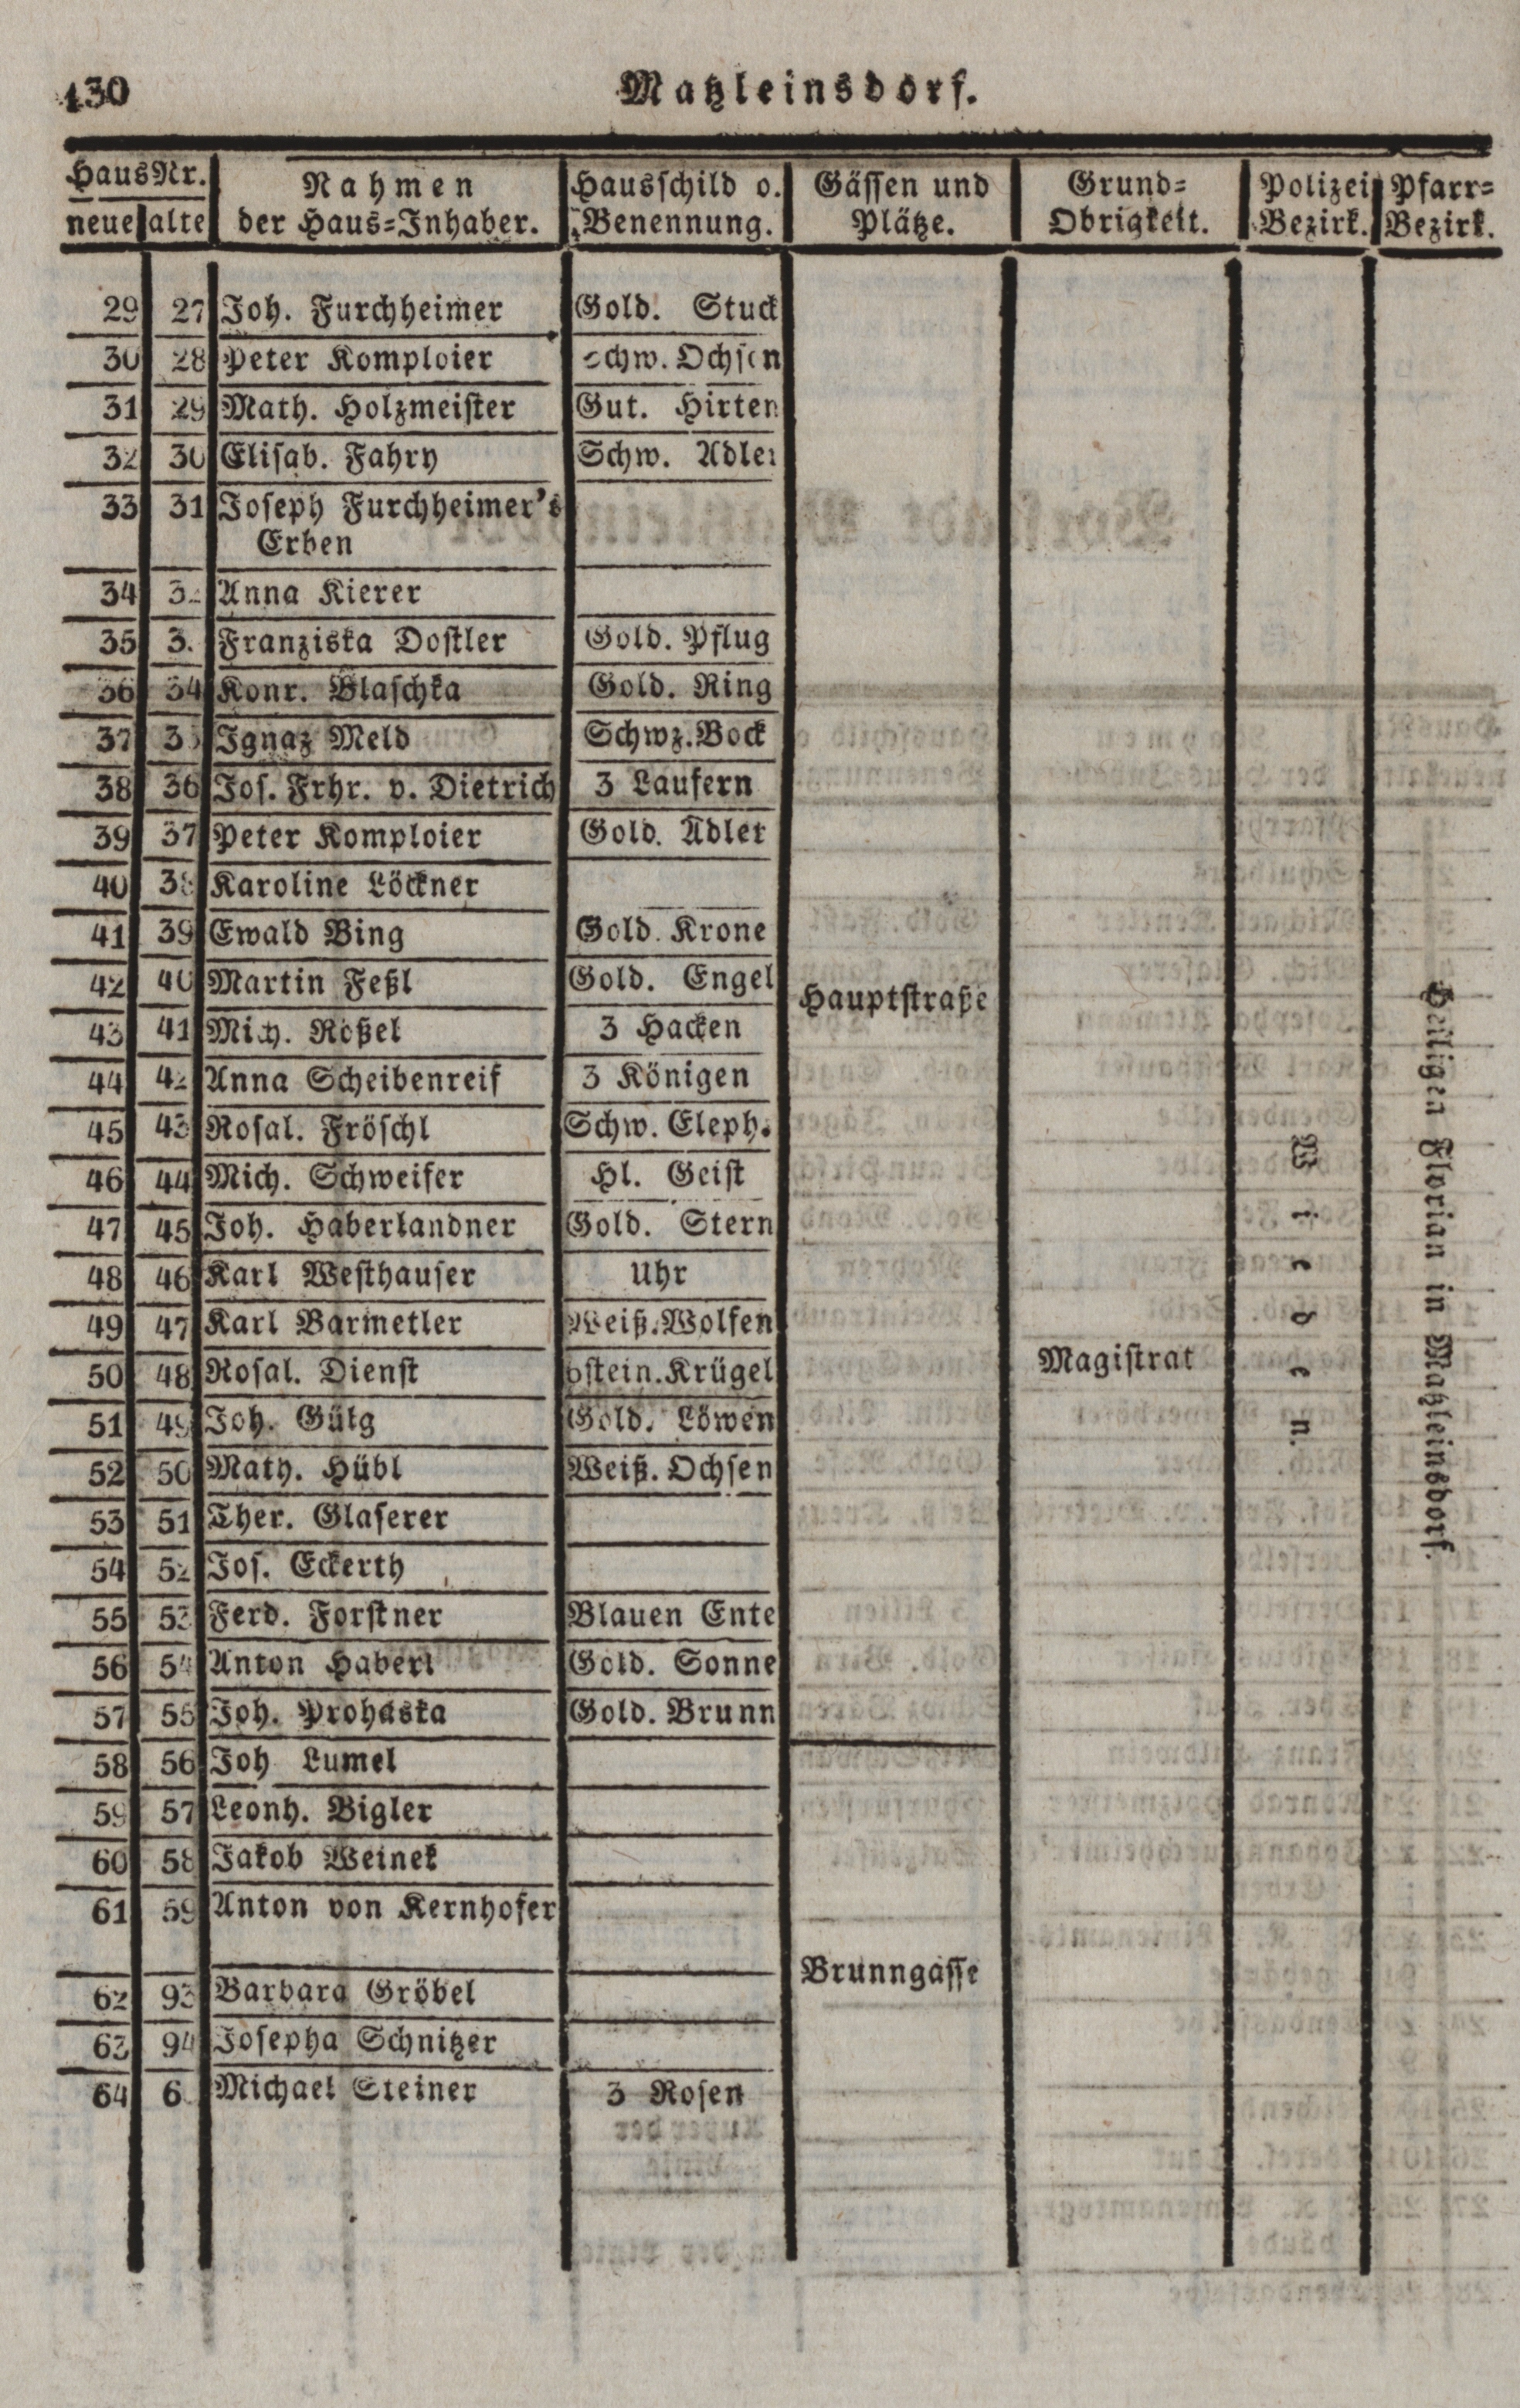 430
Matzleinsdorf.
HausNr. Nahmen Hausschild o. Gässen und Grund= Polizei Pfarr=
neue alte der Haus=Inhaber. Benennung. Plätze. Obrigkeit. Bezirk. Bezirk.
29 27 Joh. Furchheimer Gold. Stuck
30 28 Peter Komploier Schw. Ochsen
31 29 Math. Holzmeister Gut. Hirten
32 30 Elisab. Fahry Schw. Adler
33 31 Joseph Furchheimer's
Erben
34 3 Anna Kierer
35 3 Franziska Dostler Gold. Pflug
36 34 Konr. Blaschka Gold. Ring
37 3 Ignaz Meld Schwz. Bock
38 36 Jos. Frhr. v. Dietrich 3 Laufern
39 37 Peter Komploier Gold. Adler
40 38 Karoline Löckner
41 39 Ewald Bing Gold. Krone
42 40 Martin Feßl Gold. Engel
Hauptstraße
43 41 Mich. Roßel 3 Hacken
44 42 Anna Scheibenreif 3 Königen
45 43 Rosal. Fröschl Schw. Eleph.
46 44 Mich. Schweifer Hl. Geist
47 45 Joh. Haberlandner Gold. Stern
48 46 Karl Westhauser Uhr
49 47 Karl Barmetler Weiß. Wolfen
50 48 Rosal. Dienst stein. Krügel Magistrat
51 49 Joh. Gülg Gold. Löwen
52 50 Math. Hübl Weiß. Ochsen
53 51 Ther. Glaserer
54 52 Jos. Eckerth
55 53 Ferd. Forstner Blauen Ente
56 54 Anton Haberl Gold. Sonne
57 55 Joh. Prohaska Gold. Brunn
58 56 Joh Lumel
59 57 Leonh. Bigler
60 58 Jakob Weinek
61 59 Anton von Kernhofer
Brunngasse
62 93 Barbara Gröbel
63 94 Josepha Schnitzer
64 6 Michael Steiner 3 Rosen
Wieden.
Heiligen Florian in Matzleinsdorf.